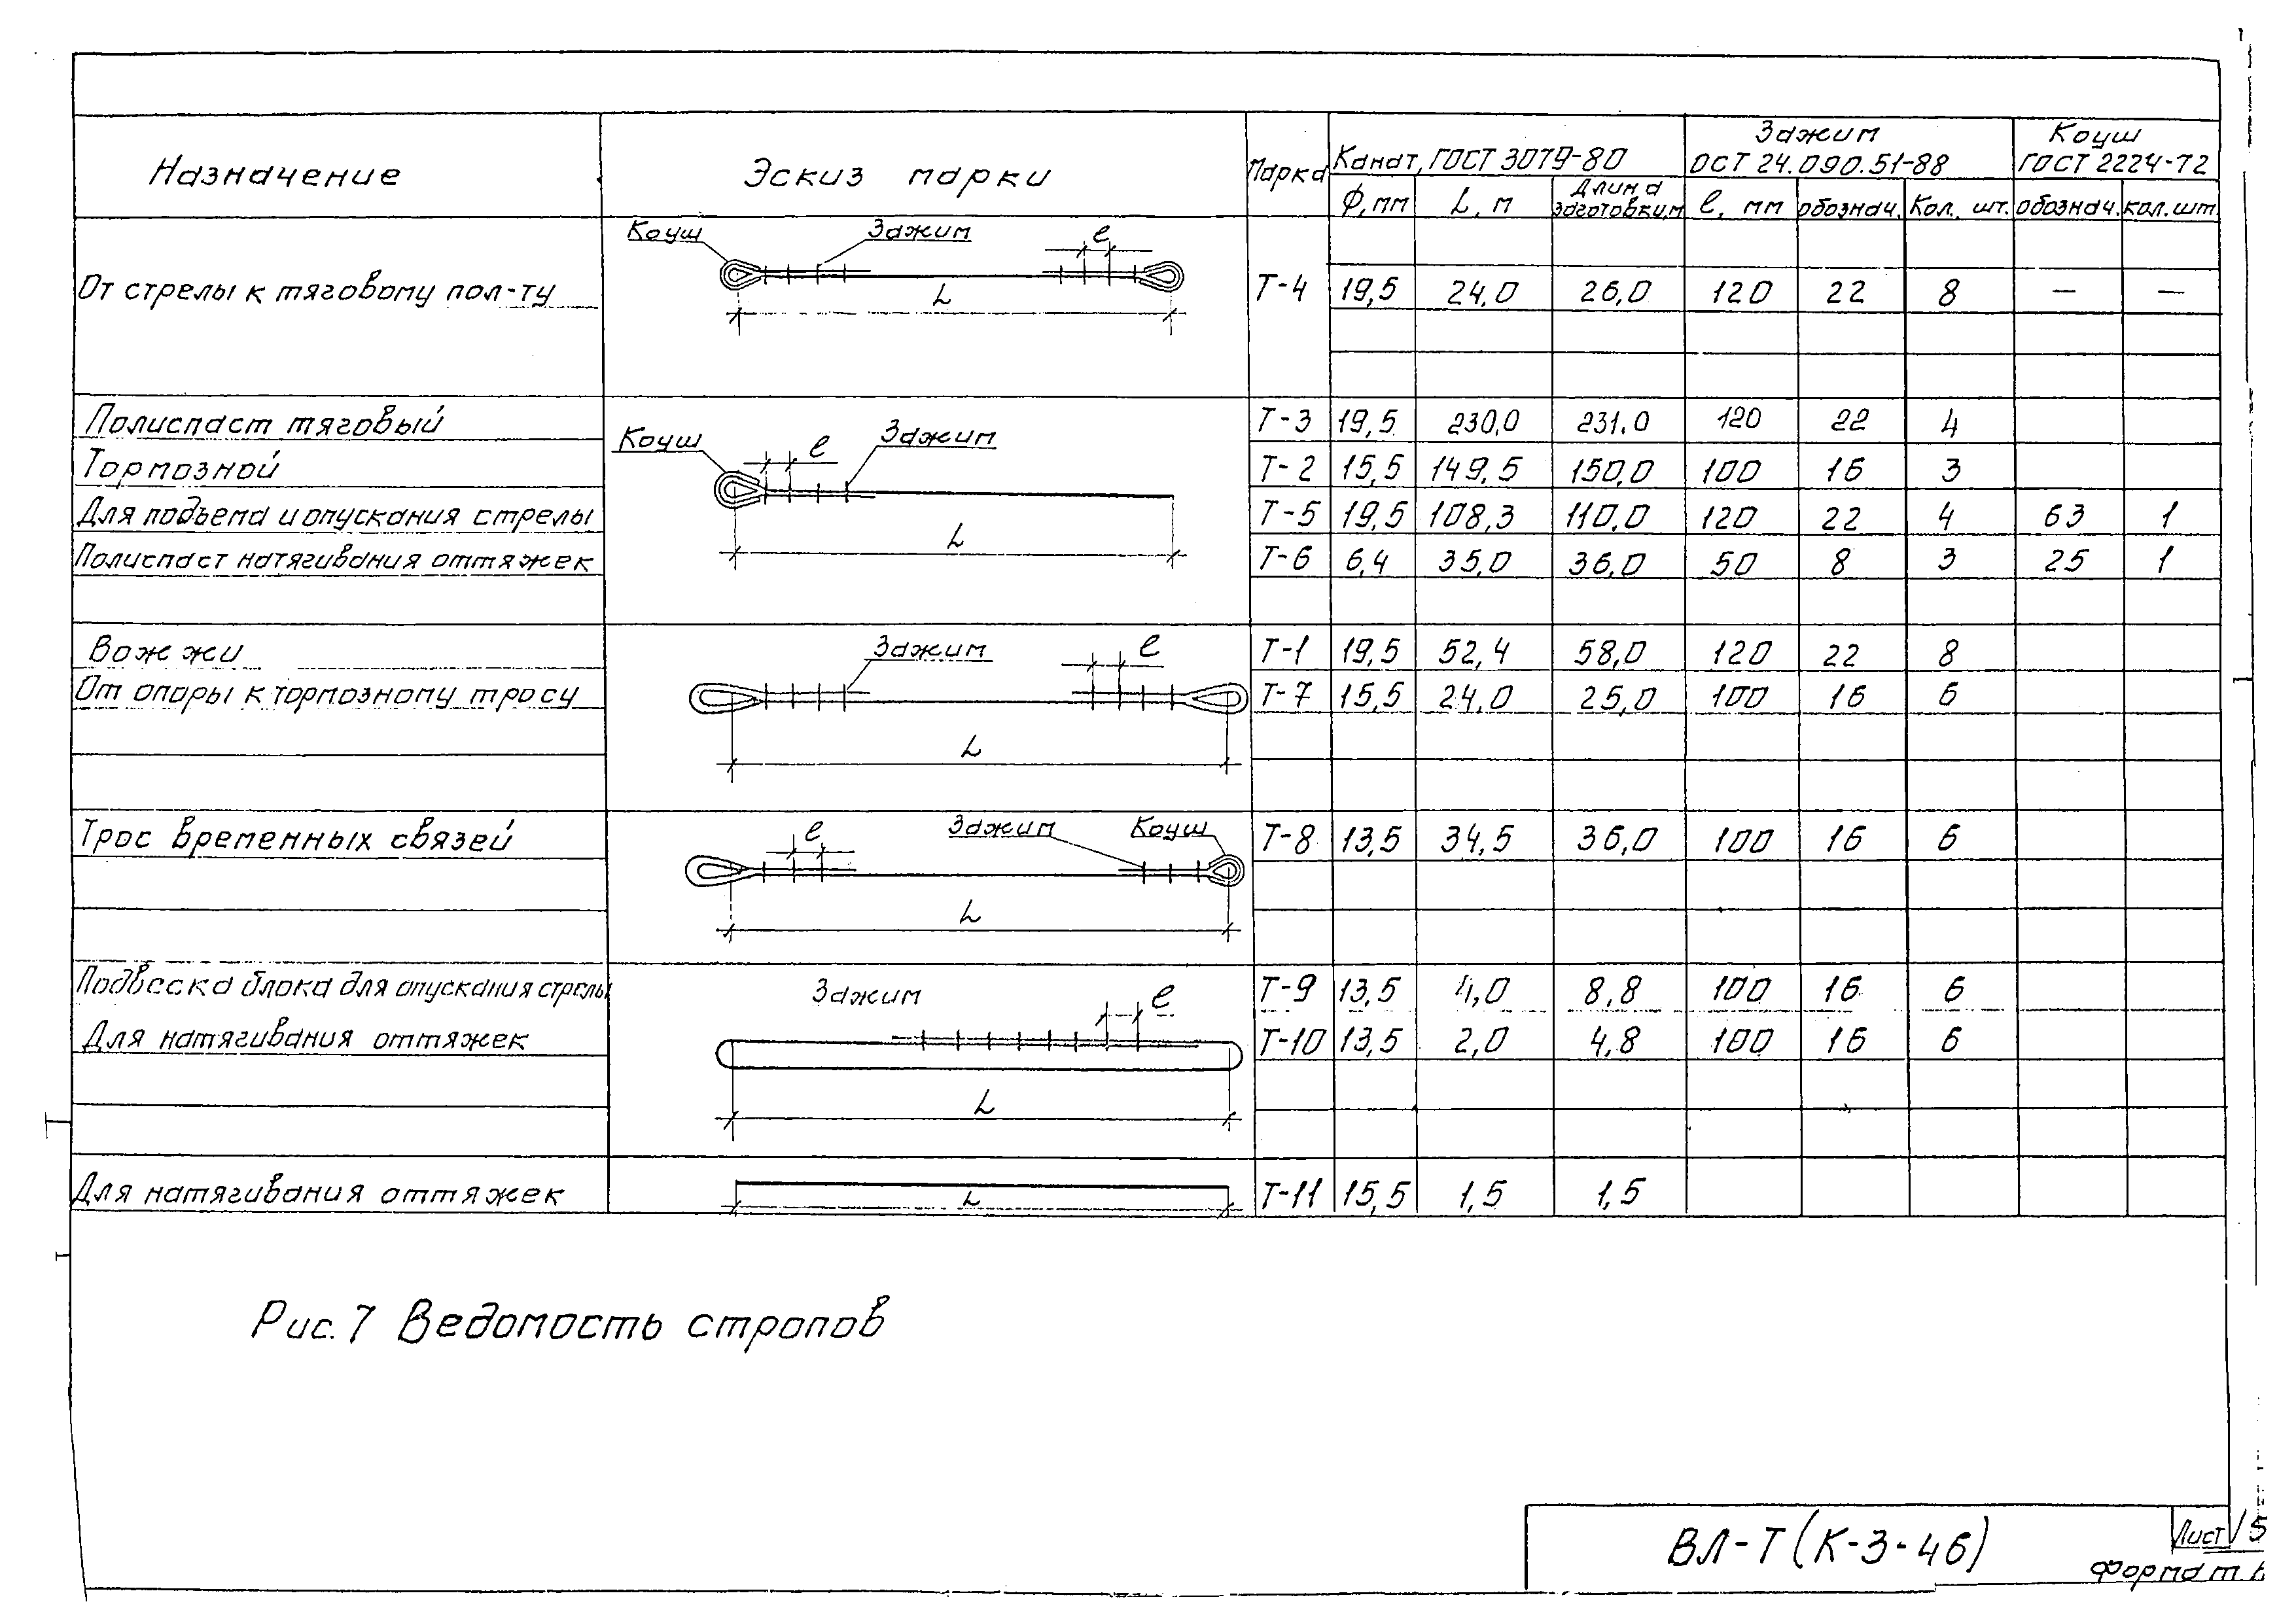 Назначение Эскиз марки Марка Канат, ГОСТ 3079-80 Зажим ОСТ 24.090.51-88 Коуш ГОСТ 2224-72
Ф, мм L, м Длина заготовки, м l, мм обознач. Кол. шт. обознач. кол. шт.
Коуш Зажим l
От стрелы к тяговому пол-ту L Т-4 19,5 24,0 26,0 120 22 8 — —
Полиспаст тяговый Т-3 19,5 230,0 231,0 120 22 4
Коуш l Зажим
Тормозной Т-2 15,5 149,5 150,0 100 16 3
Для подъема и опускания стрелы Т-5 19,5 108,3 110,0 120 22 4 63 1
L
Полиспаст натягивания оттяжек Т-6 6,4 35,0 36,0 50 8 3 25 1
Вожжи Зажим l Т-1 19,5 52,4 58,0 120 22 8
От опоры к тормозному тросу Т-7 15,5 24,0 25,0 100 16 6
L
Трос временных связей l Зажим Коуш Т-8 13,5 34,5 36,0 100 16 6
L
Подвеска блока для опускания стрелы Зажим l Т-9 13,5 4,0 8,8 100 16 6
Для натягивания оттяжек Т-10 13,5 2,0 4,8 100 16 6
L
Для натягивания оттяжек L Т-11 15,5 1,5 1,5
Рис. 7 Ведомость стропов
ВЛ-Т (К-3-46)
Лист 5
Формат